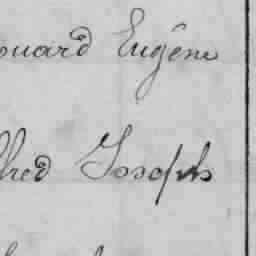 ouard Eugène
fred Joseph